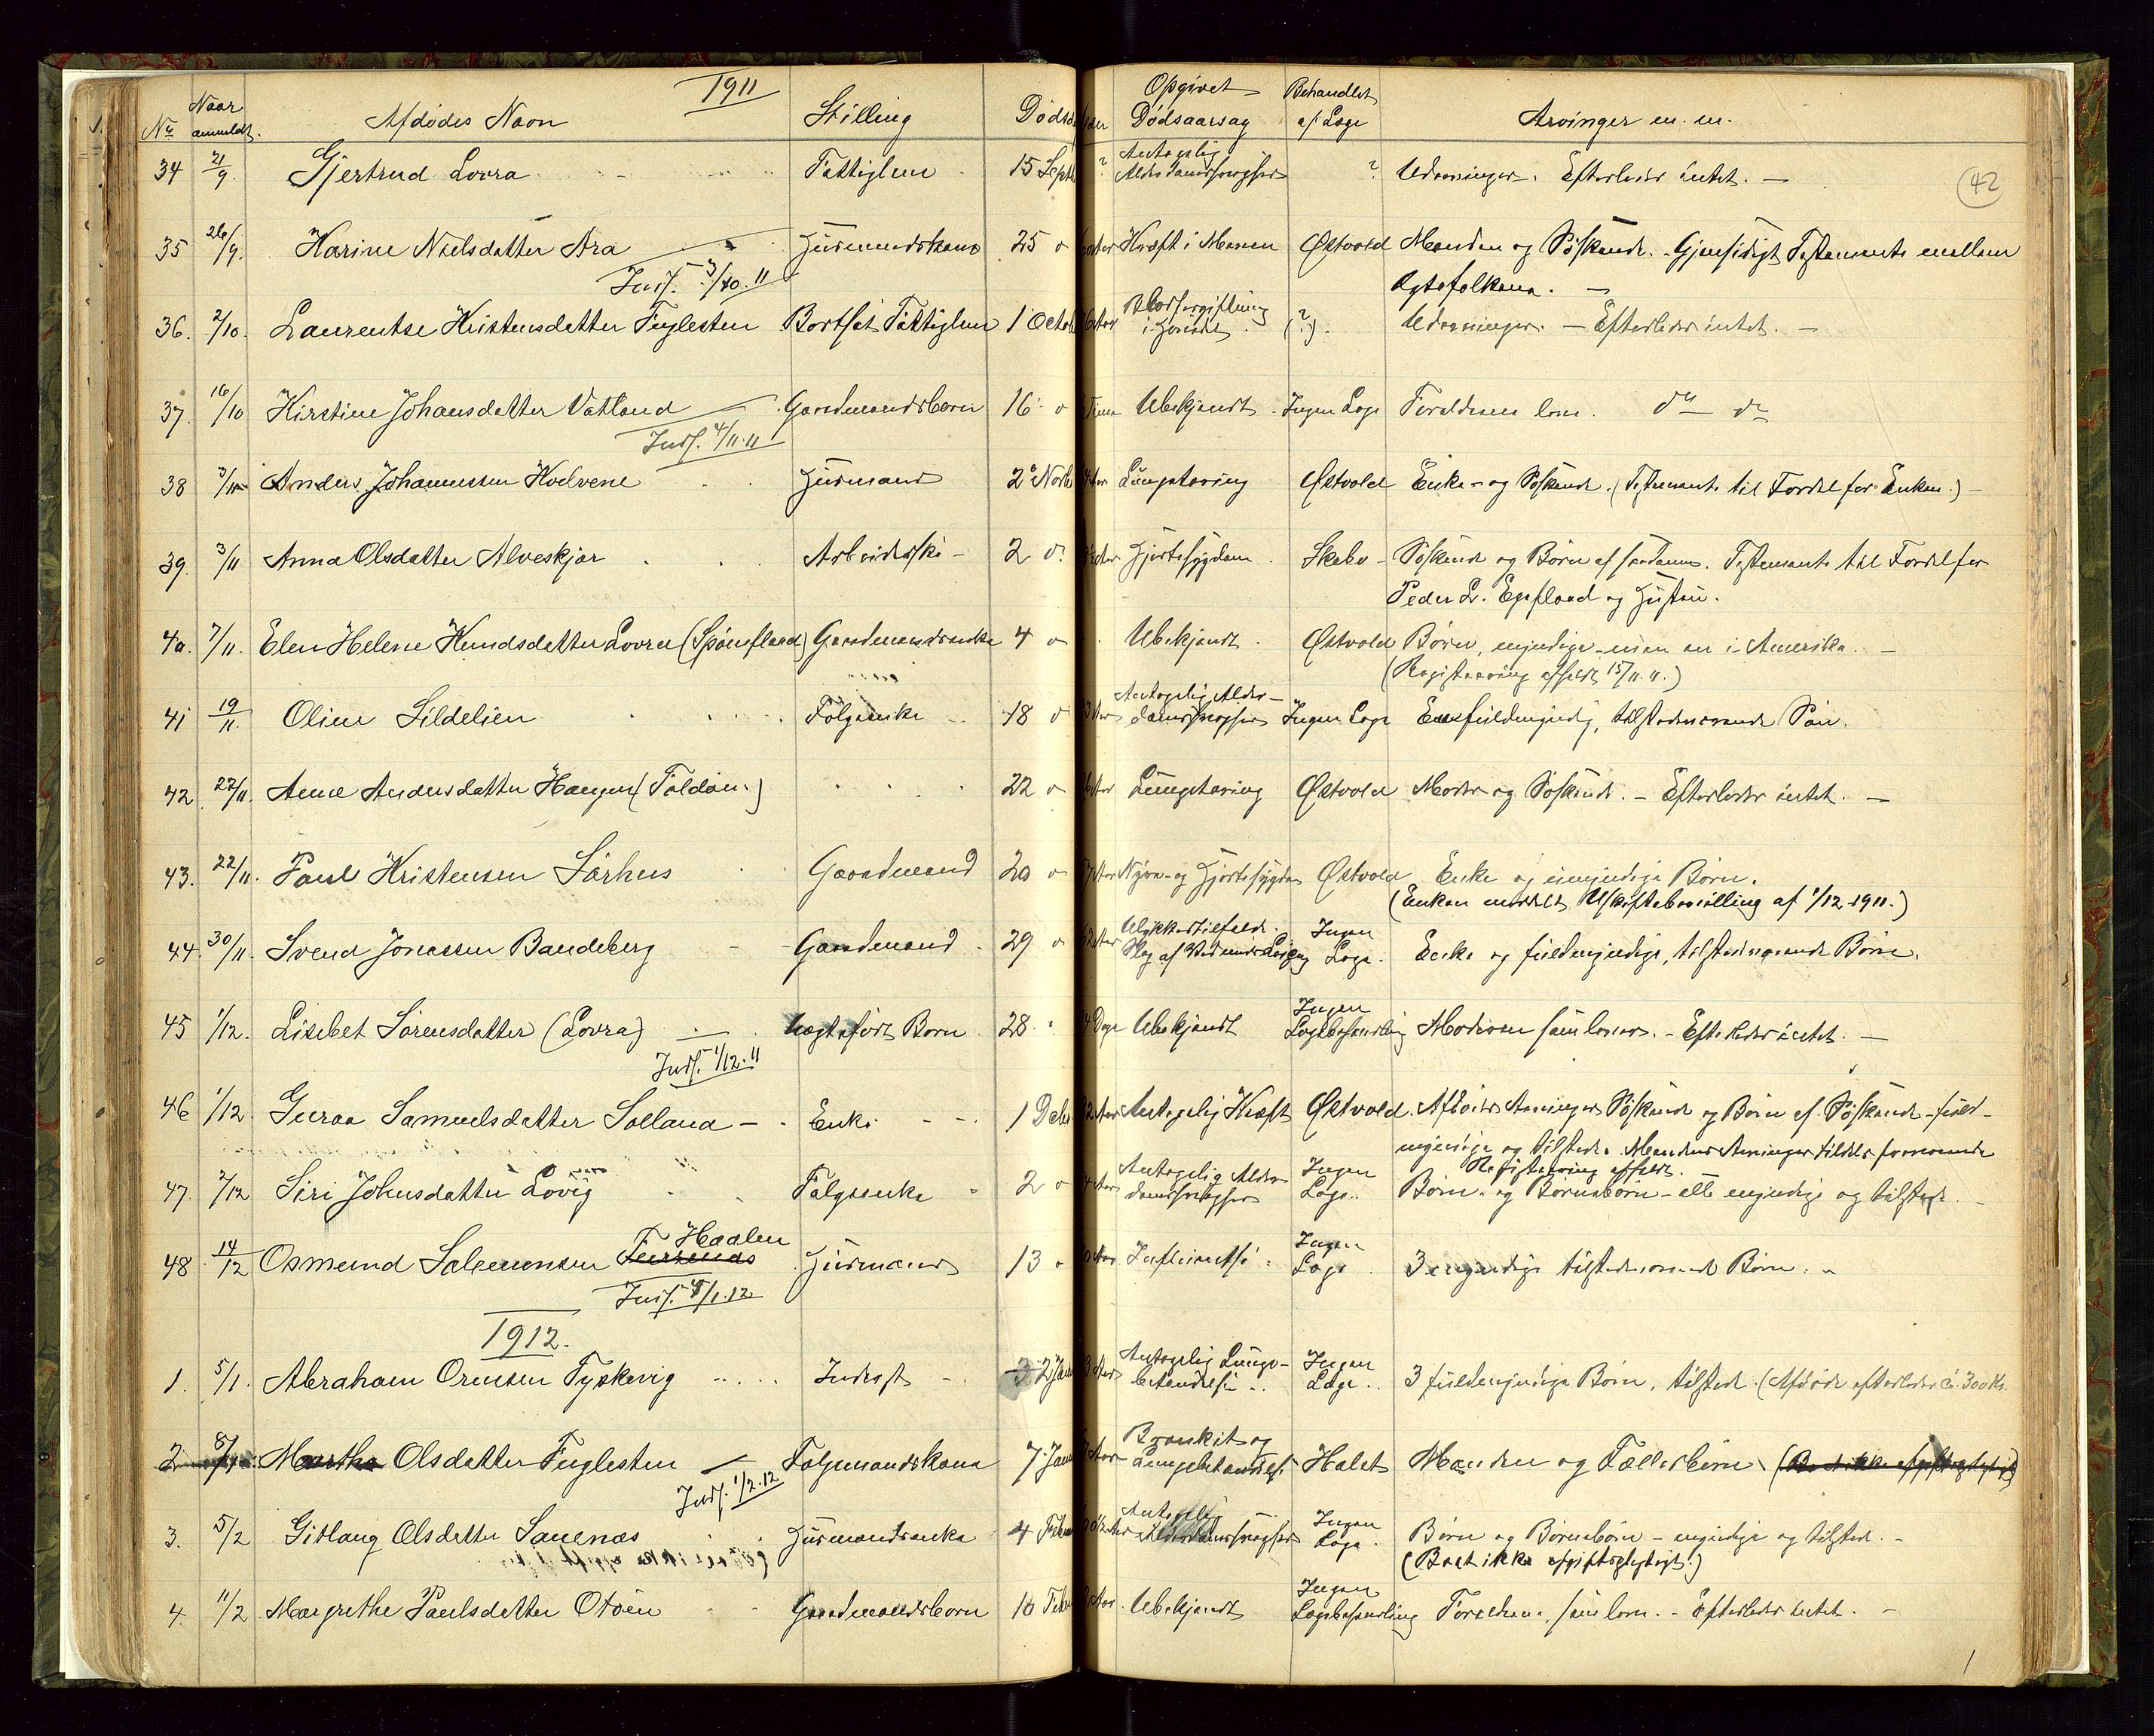 1911
No Naar anmeldt. Afdødes Navn Stilling Dødsd Opgivet Dødsaarsag Behandlet af Læge Arvinger m. m.
42
34 21/9. Gjertrud Lovra Fattiglem 15 Septb ? Antagelig Alderdomssvaghed ? Udarvinger. Efterlader intet. —
35 26/9. Karine Nielsdatter Ara Husmandskone 25 Kræft i Maven Østvold Manden og Søskende. Gjensidigt Testamente mellem
Indf. 3/10.11 Ægtefolkene. —
36. 2/10. Laurentse Kristensdatter Fuglesten Bortsat Fattiglem 1 Octob Blodforgiftning i Hovedet. (?). Udarvinger. — Efterlader intet. —
37. 16/10 Kirstine Johansdatter Vatland Gaardmandsbarn 16 Ubekjendt Ingen Læge Forældrene leve. do do
Indf. 4/11.11
38 3/11 Anders Johannessen Hodvene Husmand 2 Novb Lungetæring Østvold Enke og Søskende. (Testamente til Fordel for Enken.) —
39. 3/11 Anna Olsdatter Alveskjær 2 Hjertesygdom Skebo Søskende og Børn af saadanne. Testamente til Fordel for
Peder L. og Hustru.
40. 7/11. Elen Helene Knudsdatter Lovra Gaardmandsenke 4 Ubekjendt Østvold Børn, myndige - men er i Amerika. —
(Registrering afholdt 15/11.11.)
41 19/11. Oline Sildelien Følgeenke 18 Antagelig Alderdomssvaghed Ingen Læge fuldmyndig, tilstedeværende Søn.
42 22/11. Anne Andersdatter Haugen (Foldøen) 22 Lungetæring Østvold Moder og Søskende. — Efterlader intet. —
43. 22/11. Paul Kristensen Sørhus Gaardmand 20 Nyre- og Hjertesygdom Østvold Enke og umyndige Børn.
(Enken meddelt Uskiftebevilling af 1/12 1911.)
44. 30/11. Svend Jonassen Bandeberg Gaardmand 29 Ulykkestilfælde. Slag af Ingen Læge. Enke og fuldmyndige, tilstedeværende Børn.
45 1/12. Lisebet Sørensdatter (Lovra) Uægtefødt Barn 28 Dage Ubekjendt Ingen Lægebehandling Moderen lever. — Efterlader intet. —
Indf. 1/12.11
46 1/12. Guraa Samuelsdatter Solland Enke 1 Decbr Antagelig Kræft Østvold. Afdødes Arvinger Søskende og Børn af Søskende - fuld-
myndige og tilstede. Mandens Arvinger
Registrering afholdt.
47 2/12 Siri Johnsdatter Lovig Følgeenke 2 Antagelig Alderdomssvaghed Ingen Læge. Børn og Børnebørn - alle myndige og tilstede.
48 14/12 Osmund Salemonsen Haalen Husmand 13 Influentse Ingen Læge 3 myndige tilstedeværende Børn.
Indf. 5/1.12
1912.
1. 5/1. Abraham Ormsen Tyskevig Inderst 2 Janu Antagelig Lungebetændelse Ingen Læge. 3 fuldmyndige Børn, tilstede. (Afdøde efterlader ca. 300 Kr.
2 8/1. Martha Olsdatter Fuglesten Følgemandskone 7 Janu Bronkit og Lungebetændelse Halet Manden og Fællesbørn. (Boet ikke afgiftspligtigt)
Indf. 1/2.12
3. 5/2 Gitlaug Olsdatter Sauenæs Husmandsenke 4 Febru Antagelig Alderdomssvaghed Ingen Læge. Børn og Børnebørn - myndige og tilstede. —
(Boet ikke afgiftspligtigt.)
4. 11/2 Margrethe Paulsdatter Otøen Gaardmandsbarn 10 Febru Ubekjendt Ingen Lægebehandling Forældrene leve. — Efterlader intet. —